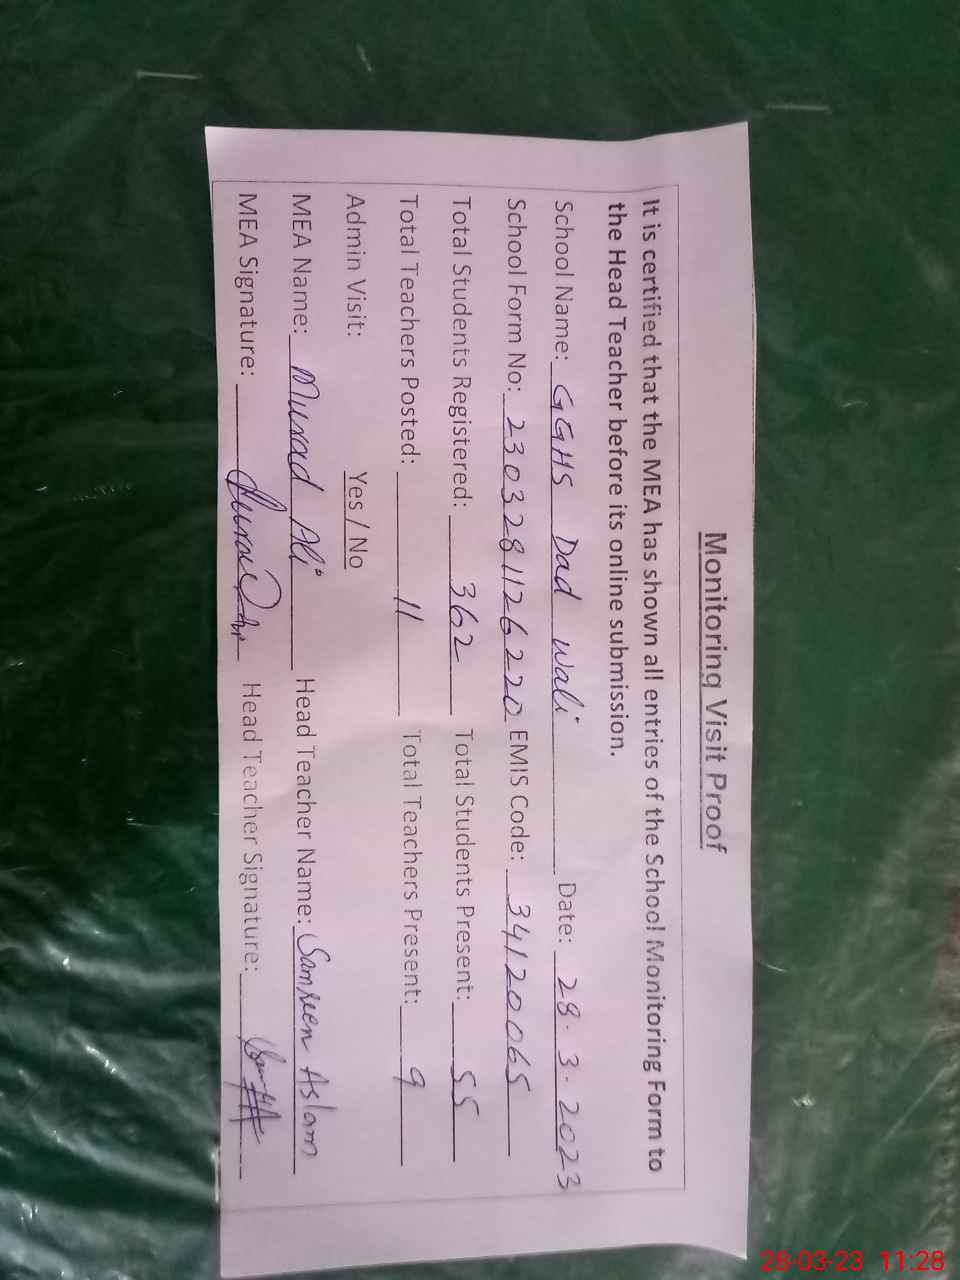 Monitoring Visit Proof
It is certified that the MEA has shown all entries of the School Monitoring Form to
the Head Teacher before its online submission.
School Name: GGHS Dad Wali Date: 28.3.2023
School Form No: 2303281126220 EMIS Code: 34120065
Total Students Registered: 362 Total Students Present: 55
Total Teachers Posted: 11 Total Teachers Present: 9
Admin Visit: Yes / No
MEA Name: Murad Ali Head Teacher Name: Samreen Aslam
MEA Signature: Head Teacher Signature:
28-03-23 11:28